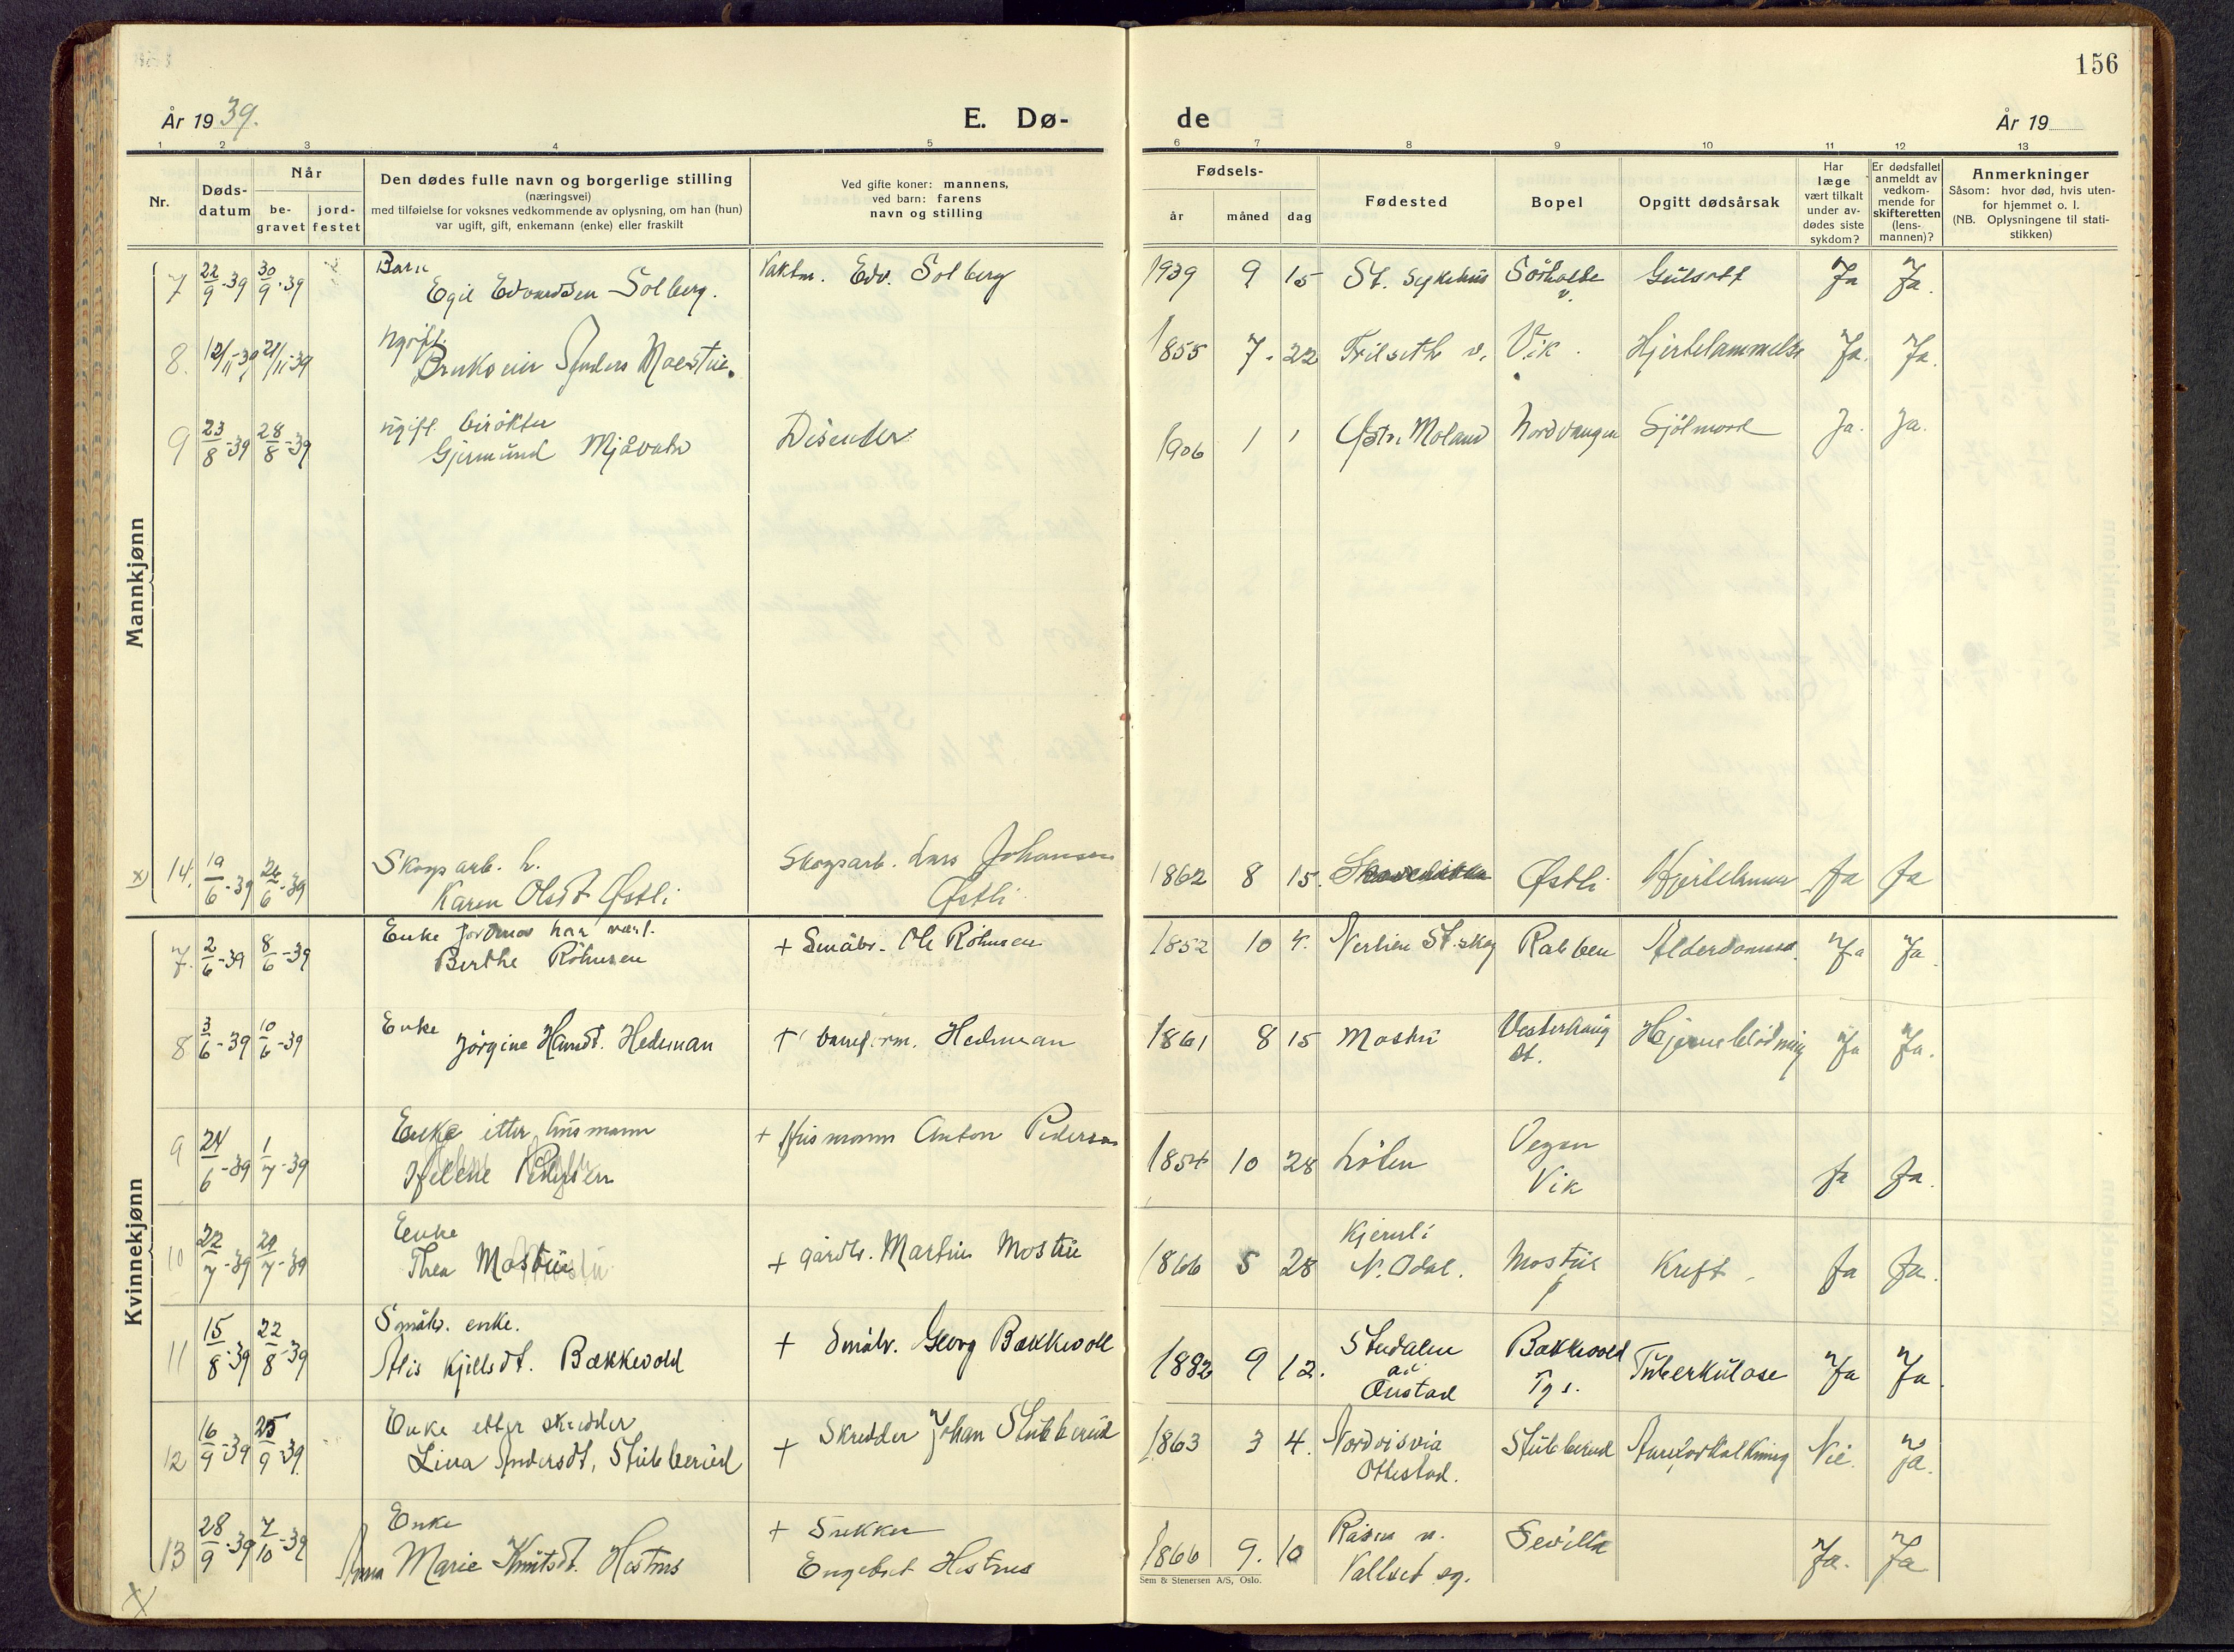 156
År 19 39.
E. Dø-
de
År 19
1 2 3 4 5 6 7 8 9 10 11 12 13
Nr.
Døds-
datum
Når
be-
gravet
jord-
festet
Den dødes fulle navn og borgerlige stilling
(næringsvei)
med tilføielse for voksnes vedkommende av oplysning, om han (hun)
var ugift, gift, enkemann (enke) eller fraskilt
Ved gifte koner: mannens,
ved barn: farens
navn og stilling
Fødsels-
år måned dag
Fødested
Bopel
Opgitt dødsårsak
Har
læge
vært tilkalt
under av-
dødes siste
sykdom?
Er dødsfallet
anmeldt av
vedkom-
mende for
skifteretten
(lens-
mannen)?
Anmerkninger
Såsom: hvor død, hvis uten-
for hjemmet o. l.
(NB. Oplysningene til stati-
stikken)
Mannkjønn
7 22/9-39 30/9-39 Barn
Egil Edvardsen Solberg. Vaktm. Edv. Solberg 1939 9 15 St. Sykehus v. Gulsott Ja Ja.
8. 12/11-39 21/11-39 Ugift.
Brukseier Anders Moestue. 1855 7. 22 Trilseth v. Vik. Ja. Ja.
9 23/8-39 28/8-39 ugift birökter
Gjermund Mjåvatn Disenter 1906 1 1 Østre Moland Nordvangen Ja. Ja.
x) 14. 19/6-39 26/6-39 Skogsarb. h.
Karen Olsdt Østli Skogsarb. Lars Johansen
Østli 1862 8 15. Østli Ja Ja
Kvinnekjønn
7. 2/6-39 8/6-39 Enke
Berthe Röhnsen + Småbr. Ole Röhnsen 1852 10 4. Nerlien St. skog Rabben Ja Ja.
8 3/6-39 10/6-39 Enke
Jörgine Hansdt. Hedeman + Hedeman 1861 8 15 Mostu Vesterhaug
st. Hjerneblödning Ja Ja.
9 24/6-39 1/7-39 Enke etter husmann
Helene Pedersen + Husmann Anton Pedersen 1854 10 28 Löten
Vik Ja Ja.
10 22/7-39 29/7-39 Enke
Thea Mostue + gårdbr. Martin Mostue 1866 5 28 Kjernli
N. Odal. Mostue Kreft - Ja Ja.
11 15/8-39 22/8-39 Småbr. enke.
Alis Kjellsdt. Bækkevold + Småbr. Georg Bækkevold 1882 9 12. Stendalen
Bækkevold Tuberkulose Ja Ja.
12 16/9-39 25/9-39 Enke etter skredder
Lina Andersdt. Stubberud + Skredder Johan Stubberud 1863 3 4. Nordvisvia
Ottestad. Stubberud Aareforkalkning Nei. Ja.
13 28/9-39 7/10-39 Enke
Anna Marie Knutsdt. Hestnes + Snekker
Engebret Hestnes 1866 9. 10 Råsen n.
Vallset sg. Sevilla Ja. Ja
x)
Sem & Stenersen A/S, Oslo.